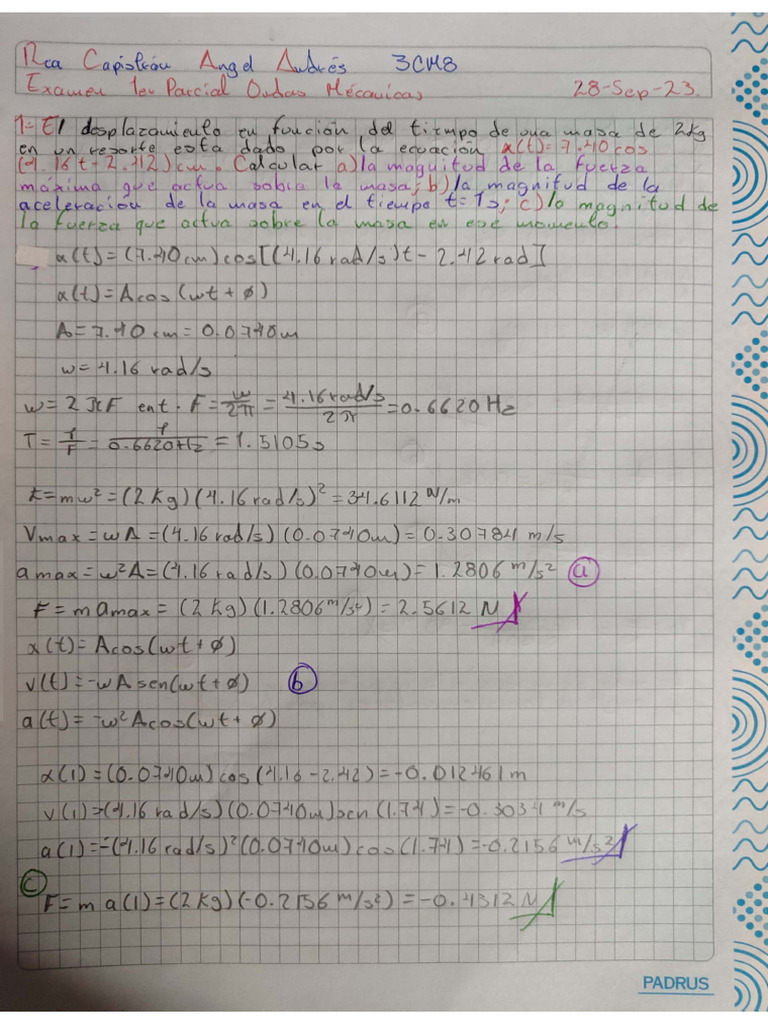 Rea Capistrán Angel Andrés 3CM8
Examen 1er Parcial Ondas Mécanicas 28-Sep-23.
1.- El desplazamiento en función del tiempo de una masa de 2kg
en un resorte esta dado por la ecuación x(t)= 7.40cos
(4.16t-2.42)cm. Calcular a) la magnitud de la fuerza
máxima que actua sobra la masa; b) la magnitud de la
aceleración de la masa en el tiempo t=1s; c) lo magnitud de
la fuerza que actua sobre la masa en ese momento.
x(t)=(7.40cm)cos[(4.16rad/s)t-2.42rad]
x(t)=Acos(wt+ø)
A=7.40cm=0.0740m
w=4.16 rad/s
w=2πF ent. F=w/2π=4.16rad/s/2π=0.6620Hz
T=1/F=1/0.6620Hz=1.5105s
k=mw²=(2kg)(4.16rad/s)²=34.6112 N/m
Vmax=wA=(4.16rad/s)(0.0740m)=0.30784 m/s
amax=w²A=(4.16rad/s)(0.0740m)=1.2806 m/s² a
F=m amax=(2kg)(1.2806m/s²)=2.5612 N
x(t)=Acos(wt+ø)
v(t)=-wAsen(wt+ø) b
a(t)=-w²Acos(wt+ø)
x(1)=(0.0740m)cos(4.16-2.42)=-0.012461m
v(1)=-(4.16rad/s)(0.0740m)sen(1.74)=-0.3034 m/s
a(1)=-(4.16rad/s)²(0.0740m)cos(1.74)=-0.2156 m/s²
c
F=m a(1)=(2kg)(-0.2156 m/s²)=-0.4312 N
PADRUS